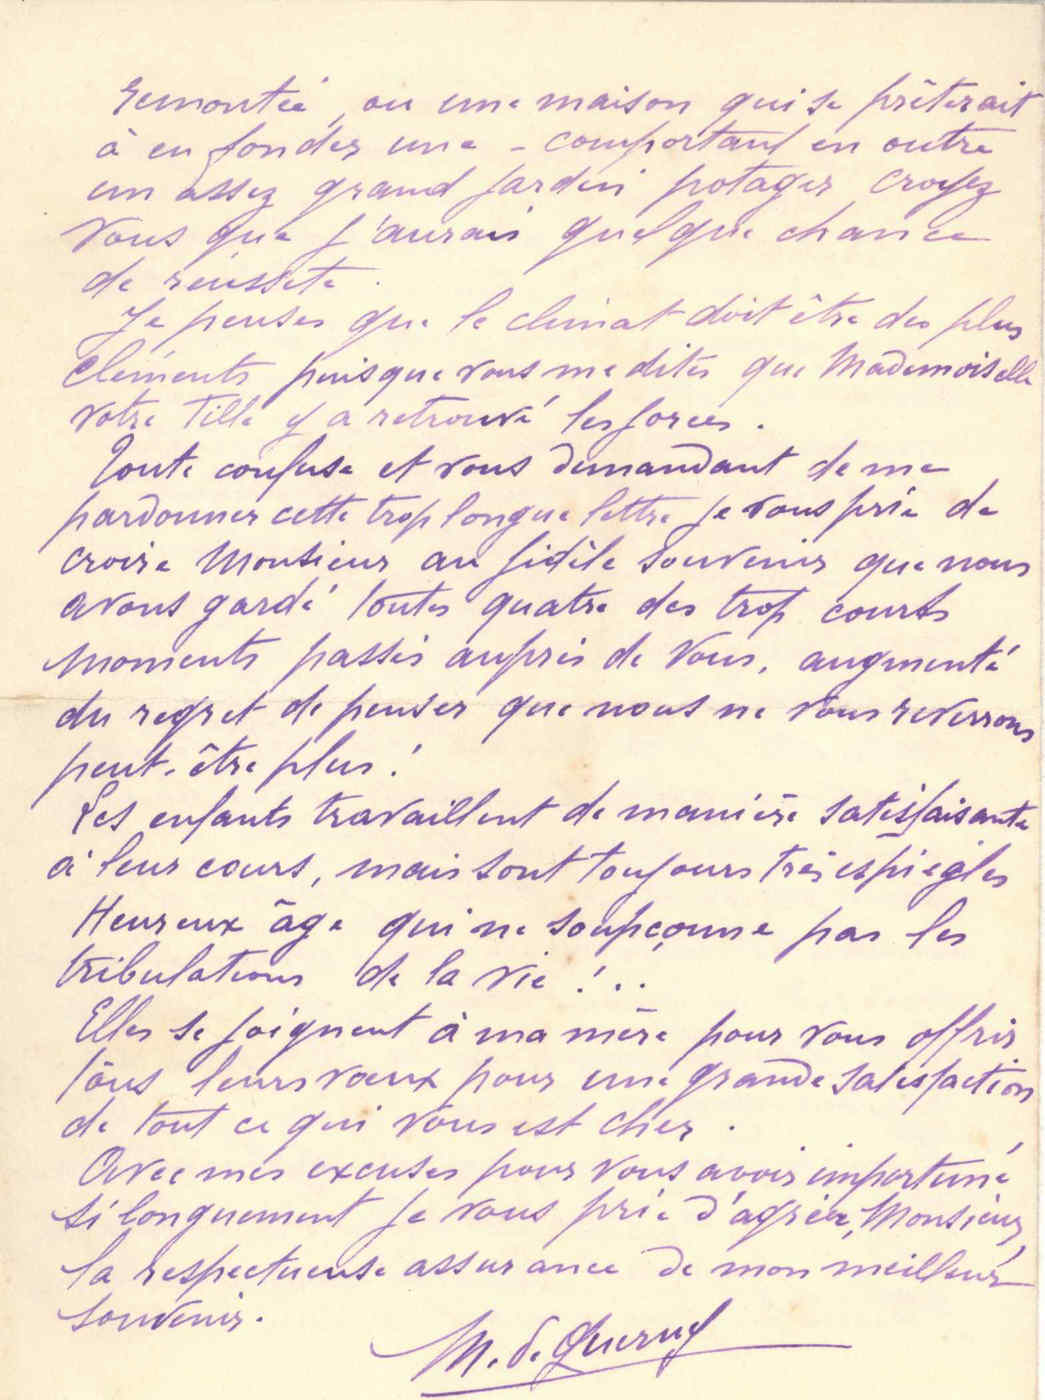 remontée, ou une maison qui se prêterait
à en fonder une - comportant en outre
un assez grand jardin potager croyez
vous que j'aurais quelque chance
de réussite.
Je penses que le climat doit être des plus
cléments puisque vous me dites que Mademoiselle
votre fille y a retrouvé les forces.
Toute confuse et vous demandant de me
pardonner cette trop longue lettre je vous prie de
croire Monsieur au fidèle souvenir que nous
avons gardé toutes quatre des trop courts
moments passés auprès de Vous, augmenté
du regret de penser que nous ne vous reverrons
peut-être plus!
Les enfants travaillent de manière satisfaisante
à leur cours, mais sont toujours très espiègles
Heureux âge qui ne soupçonne pas les
tribulations de la vie!..
Elles se joignent à ma mère pour vous offrir
tous leurs vœux pour une grande satisfaction
de tout ce qui vous est cher.
Avec mes excuses pour vous avoir importuné
si longuement je vous prie d'agréer, Monsieur,
la respectueuse assurance de mon meilleur
souvenir.
M. de